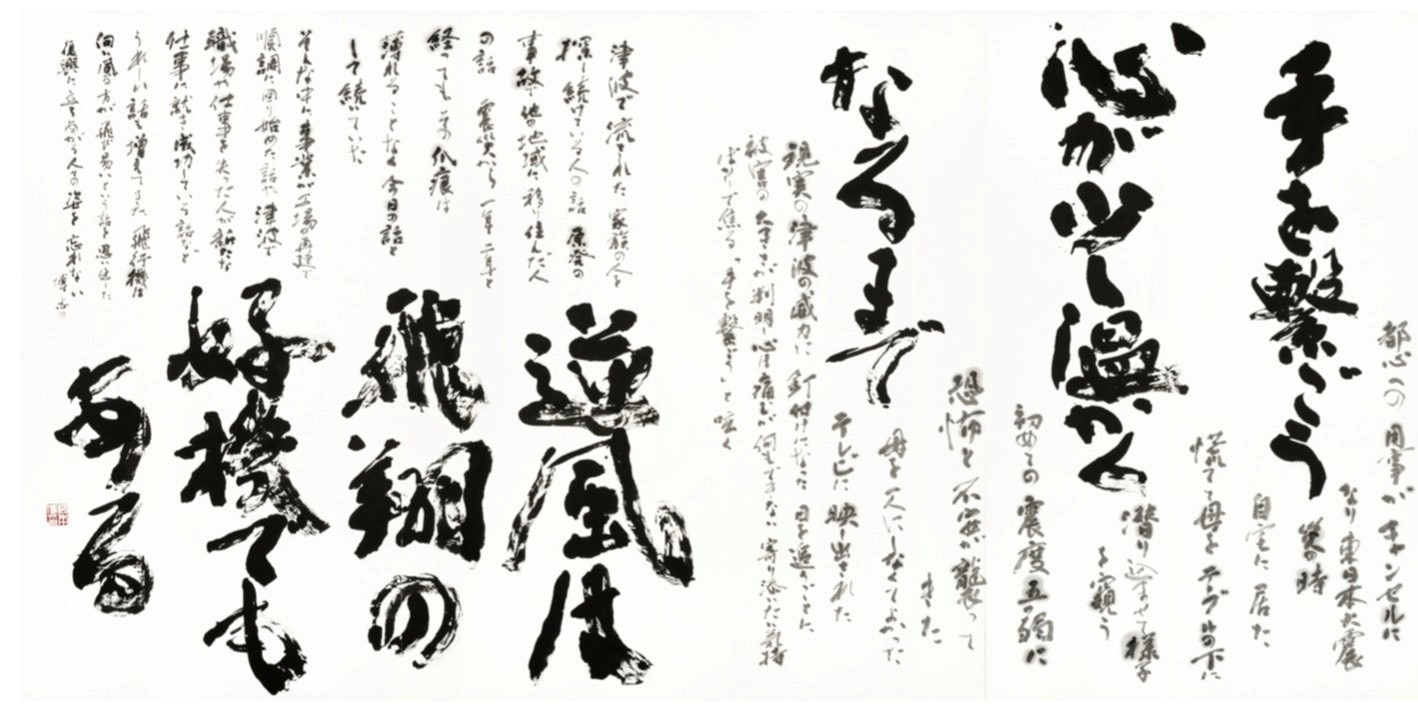 手を繋ごう
心が少し温かく
なるまで
都心への用事がキャンセルに
なり東日本大震
災の時
自宅に居た
慌てて母をテーブルの下に
潜り込ませて様子
を窺う
初めての震度五弱に
恐怖と不安が襲って
きた
母を一人にしなくてよかった
テレビに映し出された
現実の津波の威力に釘付けになった 日を追うごとに
被害の大きさが判明し心は痛むが何もできない寄り添いたい気持
ばかりで焦る「手を繋ごう」と呟く
逆風は
飛翔の
好機でも
ある
津波で流された家族の人を
探し続けている人の話 原発の
事故で他の地域に移り住んだ人
の話 震災から一年二年と
経ってもその爪痕は
薄れることなく今日の話と
して続いていた
そんな中に事業が工場の再建で
順調に回り始めた話や津波で
職場や仕事を失った人が新たな
仕事に就き成功している話など
うれしい話も増えてきた 飛行機は
向い風の方が飛び易いという話を思い出した
復興に立ち上がる人々の姿を忘れない